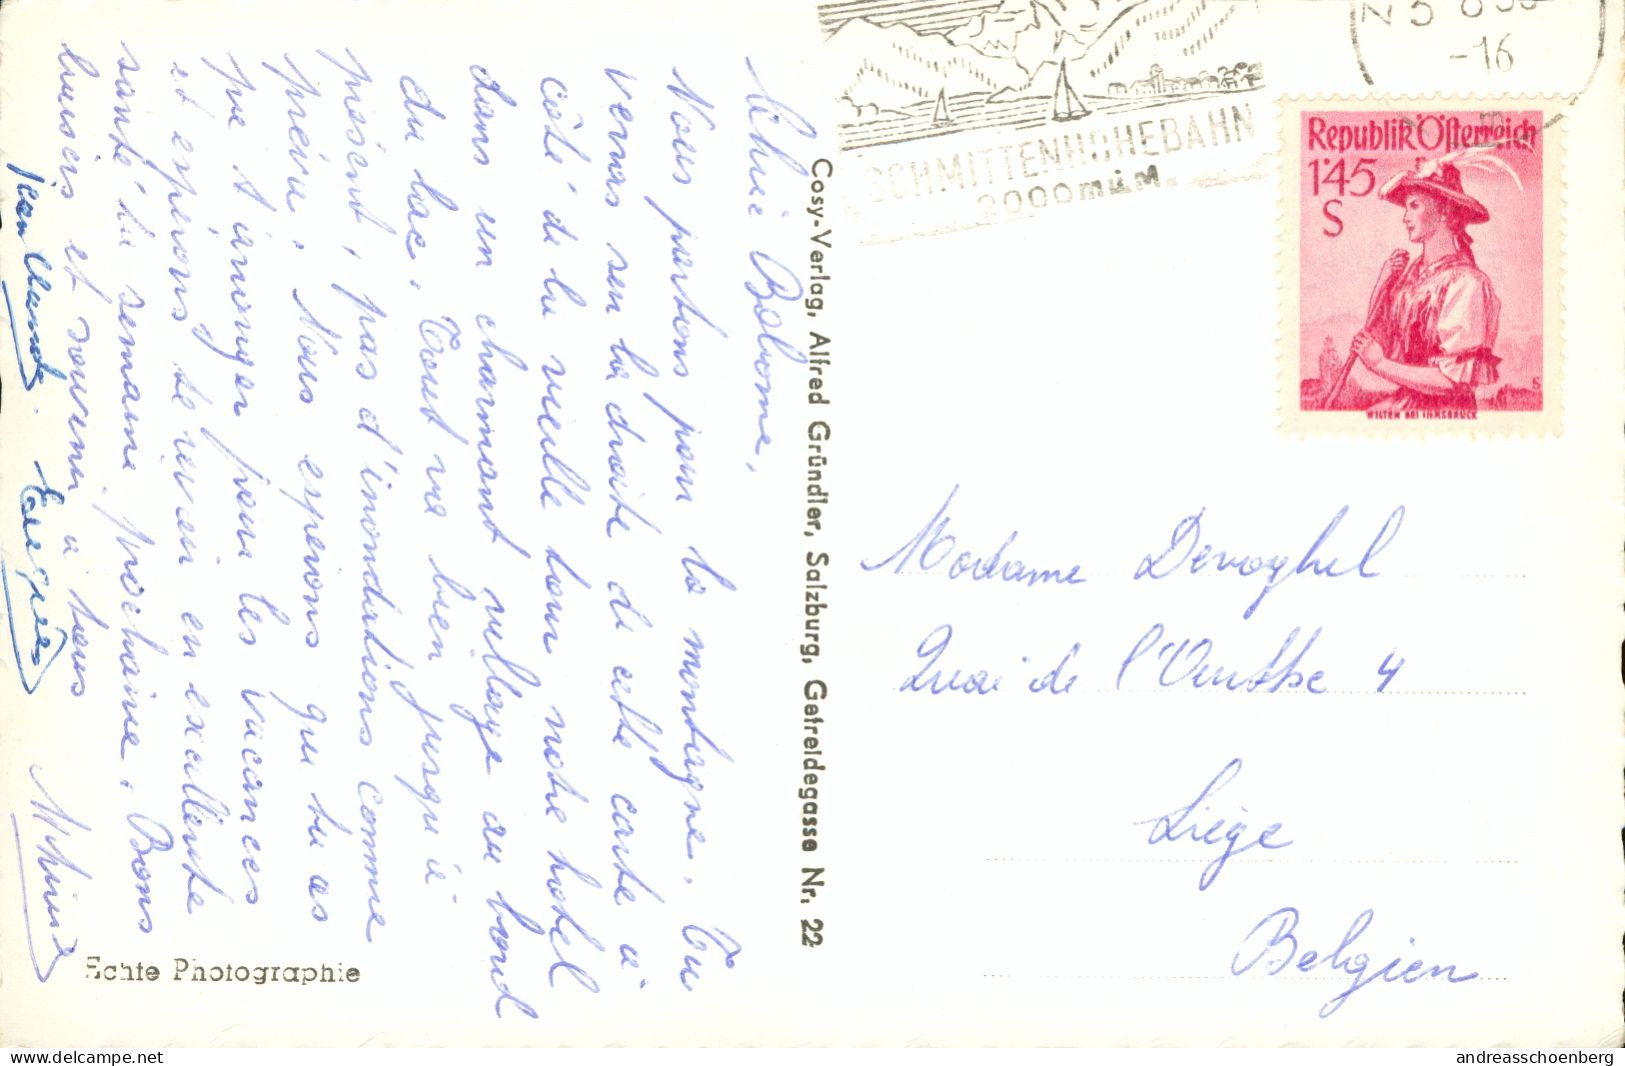 Chère Bobonne,
Nous partons pour la montagne. Tu
verras sur la droite de cette carte à
côté de la vieille tour notre hotel
dans un charmant village au bord
du lac. Tout va bien jusqu'à
présent, pas d'inondations comme
prévu. Nous espérons que tu as
pu t'arranger pour les vacances
et espérons te revoir en excellente
santé la semaine prochaine. Bons
baisers et souvenir à tous
Jean Claude.
Echte Photographie
Cosy-Verlag, Alfred Gründler, Salzburg, Getreidegasse Nr. 22
SCHMITTENHÖHEBAHN
2000 m ü. M.
-16
Republik Österreich
1·45
S
WILTEN BEI INNSBRUCK
Madame Devoghel
Quai de l'Ourthe 4
Liège
Belgien
andreasschoenberg
www.delcampe.net